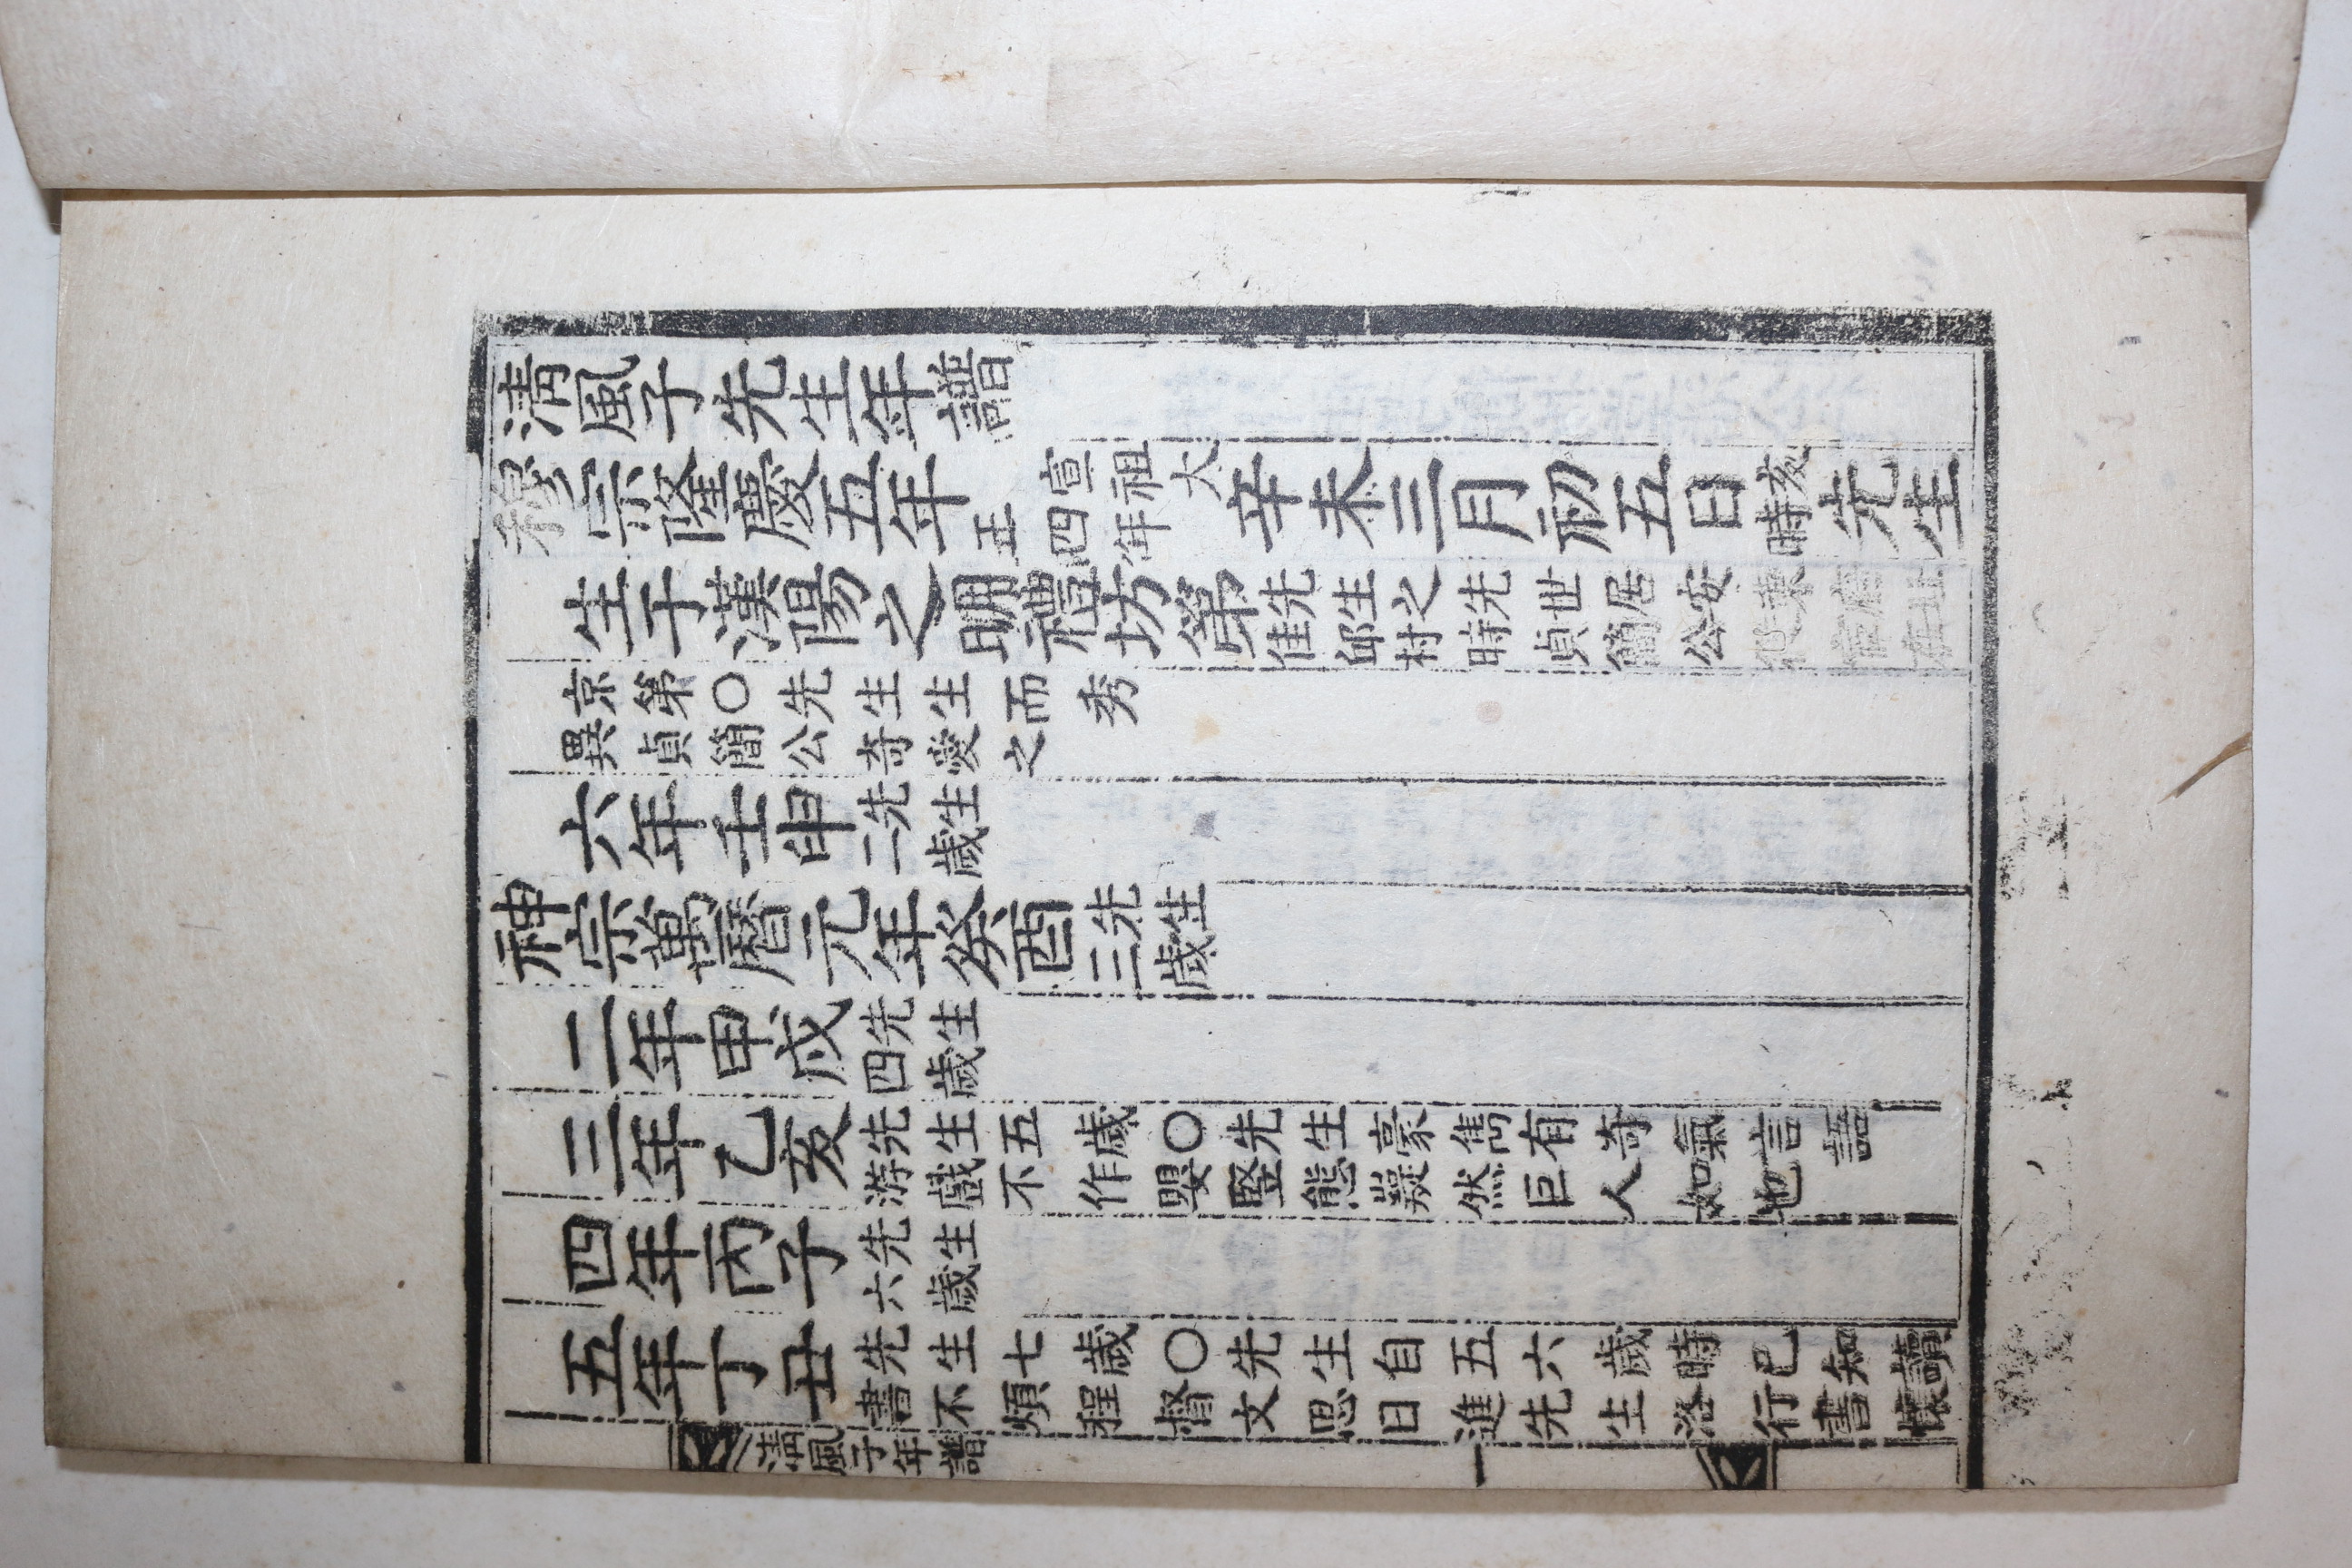 淸風子先生年譜
穆宗隆慶五年宣祖大正四年辛未三月初五日亥時先生
生于漢陽之明禮坊第先生之先世居安東府
佳邱村時貞簡公從宦在
京第○先生生而秀
異貞簡公奇愛之
六年壬申先生二歲
神宗萬曆元年癸酉先生三歲
二年甲戌先生四歲
三年乙亥先生五歲○先生豪雋有奇氣言語
游戲不作嬰竪態嶷然巨人如也
四年丙子先生六歲
五年丁丑先生七歲○先生自五六歲時已知讀
書不煩程督文思日進先生洛行書懷
淸風子年譜 一